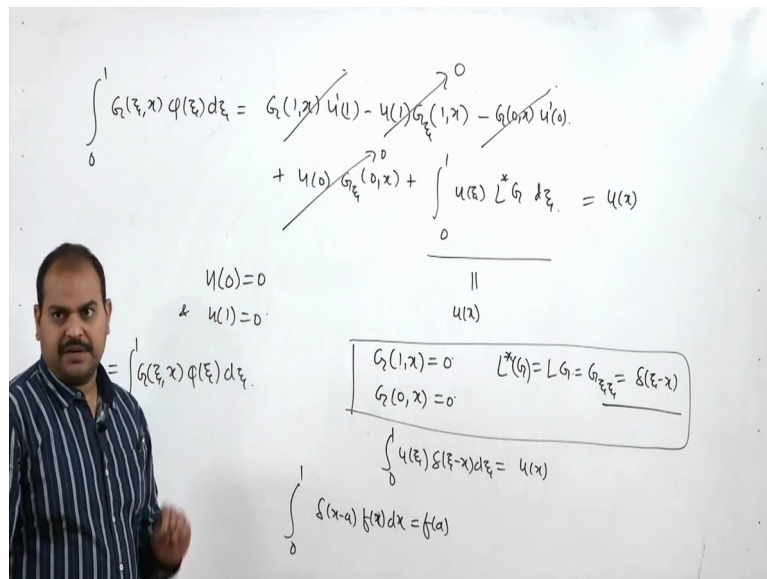 ∫₀¹ G(ξ,x) φ(ξ)dξ = G(1,x) u'(1) - u(1) G_ξ(1,x) - G(0,x) u'(0).
0
+ u(0) G_ξ(0,x) + ∫₀¹ u(ξ) L*G dξ. = u(x)
0
u(0)=0
& u(1)=0.
||
u(x)
= ∫₀¹ G(ξ,x) φ(ξ)dξ.
G(1,x)=0 L*(G)=LG=G_ξξ = δ(ξ-x)
G(0,x)=0
∫₀¹ u(ξ) δ(ξ-x)dξ = u(x)
∫₀¹ δ(x-a) f(x)dx = f(a)